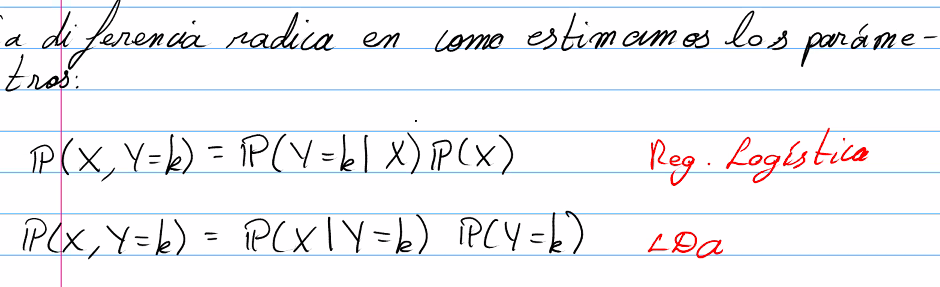 a diferencia radica en como estimamos los paráme-
tros:
P(X, Y=k) = P(Y=k | X) P(X) Reg. Logística
P(X, Y=k) = P(X | Y=k) P(Y=k) LDa